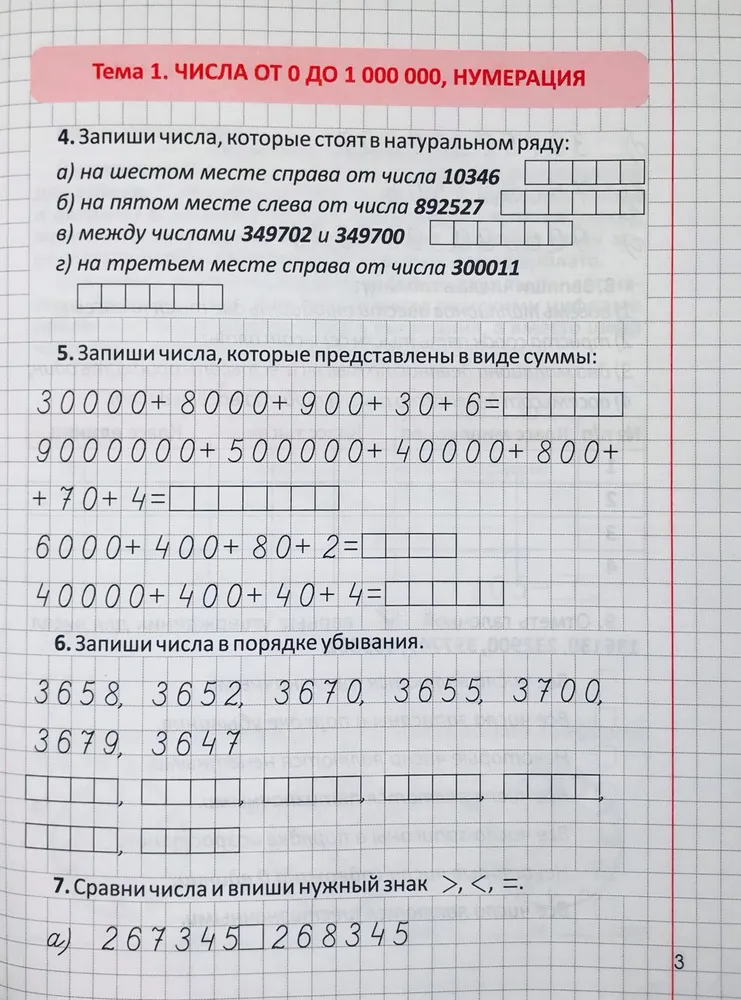 Тема 1. ЧИСЛА ОТ 0 ДО 1 000 000, НУМЕРАЦИЯ
4. Запиши числа, которые стоят в натуральном ряду:
а) на шестом месте справа от числа 10346
б) на пятом месте слева от числа 892527
в) между числами 349702 и 349700
г) на третьем месте справа от числа 300011
5. Запиши числа, которые представлены в виде суммы:
30000+ 8000+ 900+ 30+ 6=
9000000+ 500000+ 40000+ 800+
+ 70+ 4=
6000+ 400+ 80+ 2=
40000+ 400+ 40+ 4=
6. Запиши числа в порядке убывания.
3658, 3652, 3670, 3655, 3700,
3679, 3647
, , , , ,
,
7. Сравни числа и впиши нужный знак >, <, =.
а) 267345 268345
3